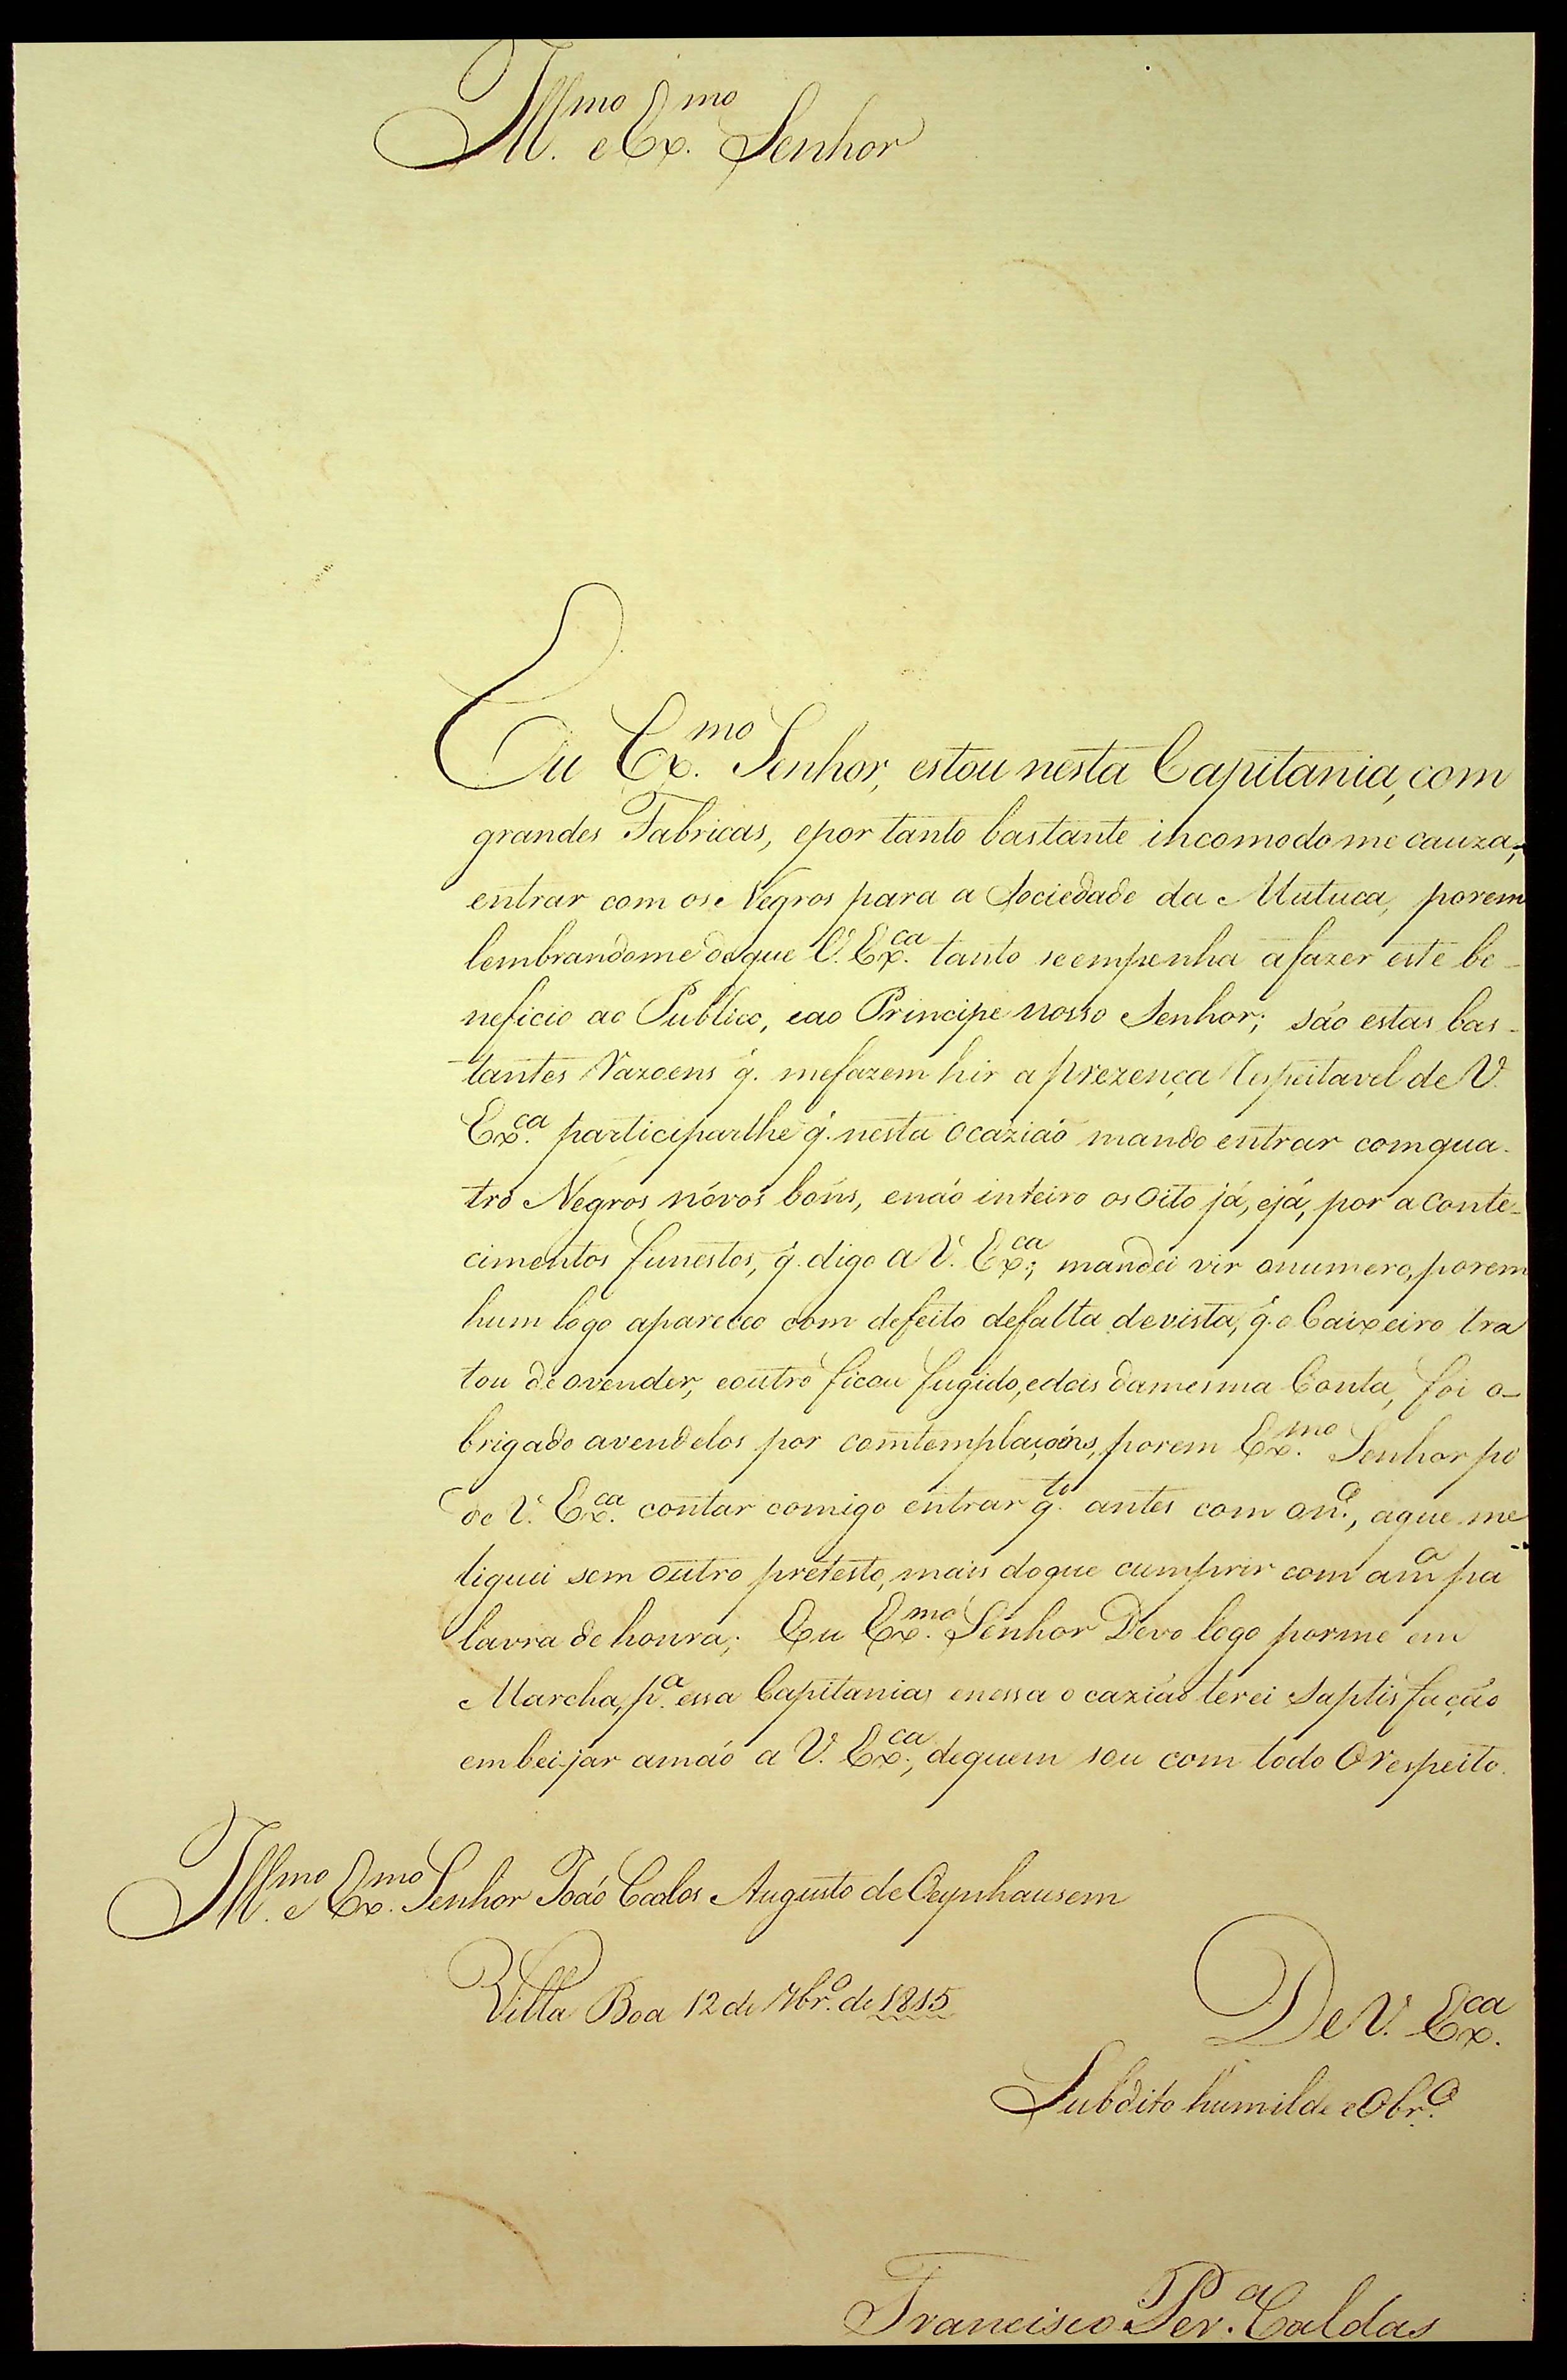 Ill.mo e Ex.mo Senhor
Eu Ex.mo Senhor, estou nesta Capitania, com
grandes Fabricas, epor tanto bastante incomodo me cauza,
entrar com os Negros para a Sociedade da Mutuca, porem
lembrandome deque V. Ex.ca tanto seempenha afazer este be-
neficio ao Publico, eao Principe nosso Senhor; são estas bas-
tantes Razoens q. mefazem hir a prezença Respeitavel de V.
Ex.ca participarlhe q. nesta ocazião mando entrar comqua-
tro Negros nóvos bons, enão inteiro os oito já, ejá, por a conte-
cimentos funestos, q. digo a V. Ex.ca; mandei vir onumero, porem
hum logo apareceo com defeito defalta devista, q. o Caixeiro tra
tou deovender, eoutro ficou fugido, edois damesma Conta, foi o-
brigado avendelos por comtemplaçoens, porem Ex.mo Senhor po
de V. Ex.ca contar comigo entrar q.to antes com on.o, aque me
liguei sem outro pretesto, mais doque cumprir com am.a pa
lavra de honra; Eu Ex.mo Senhor Devo logo porme em
Marcha, p.a essa Capitania, enessa o cazião terei Saptisfação
embeijar amão a V. Ex.ca, dequem sou com todo O respeito.
Ill.mo e Ex.mo Senhor João Carlos Augusto de Oeynhausem
Villa Boa 12 de 7br.o de 1815
De V. Ex.ca
Subdito humilde e Obr.o
Francisco Per.a Caldas